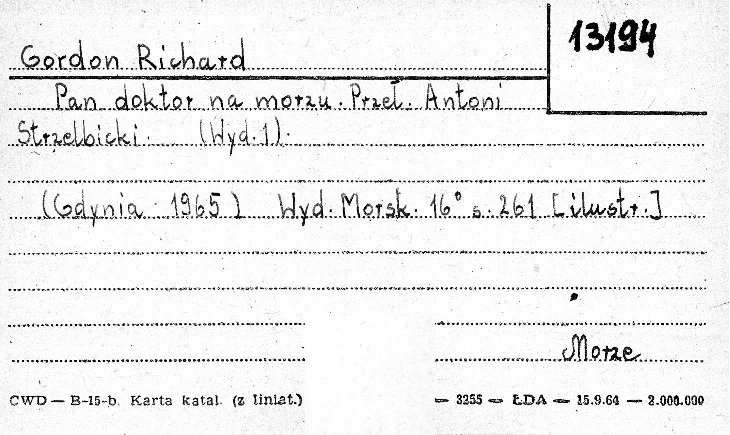 13194
Gordon Richard
Pan doktor na morzu. Przeł. Antoni
Strzelbicki. (Wyd. 1).
(Gdynia 1965) Wyd. Morsk. 16° s. 261 [ilustr.]
Morze
CWD — B-15-b. Karta katal. (z liniat.) — 3255 — ŁDA — 15.9.64 — 2.000.000